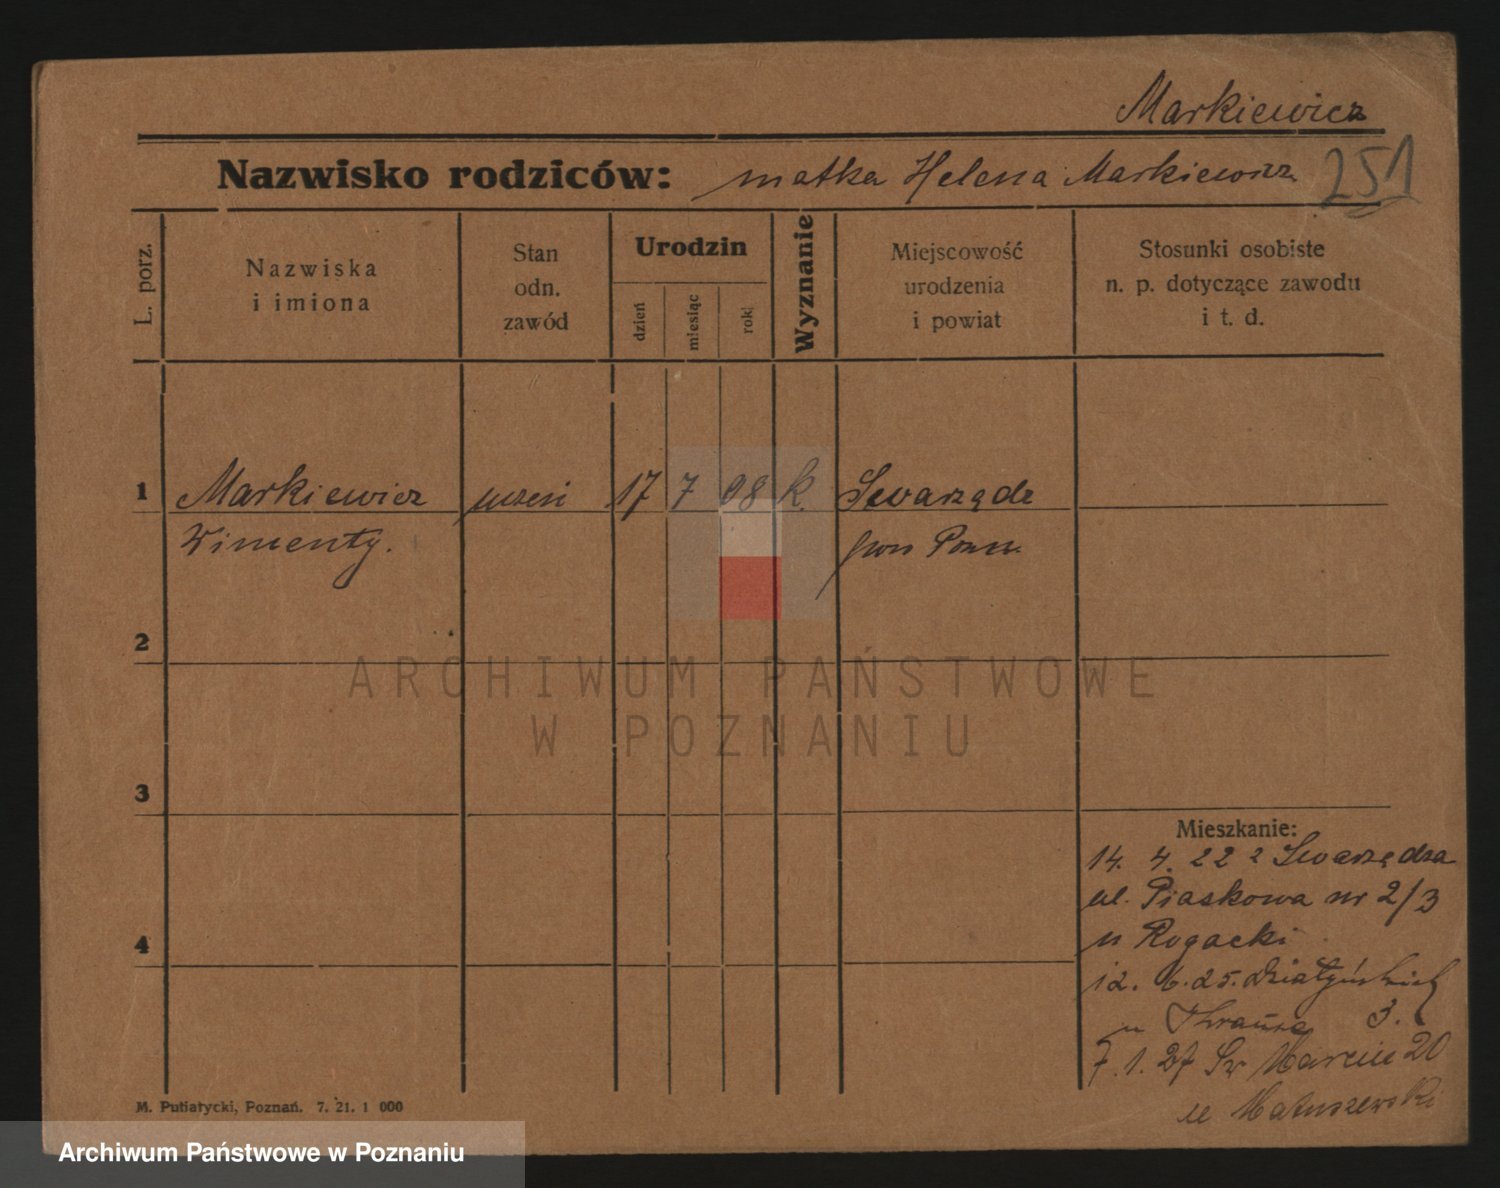 Markiewicz
Nazwisko rodziców: matka Helena Markiewicz 251
L. porz.
Nazwiska
i imiona
Stan
odn.
zawód
Urodzin
dzień
miesiąc
rok
Wyznanie
Miejscowość
urodzenia
i powiat
Stosunki osobiste
n. p. dotyczące zawodu
i t. d.
1 Markiewicz uczeń 17 7 08 k. Swarzędz
Winenty. pow Pozn.
2
3
4
ARCHIWUM PAŃSTWOWE
W POZNANIU
Mieszkanie:
14. 4. 22 z Swarzędza
ul. Piaskowa nr 2/3
u Rogacki
12. 6. 25. Działyńskich
u 3.
7. 1. 27 Św Marcin 20
u Matuszewski
M. Putiatycki, Poznań. 7. 21. 1 000
Archiwum Państwowe w Poznaniu